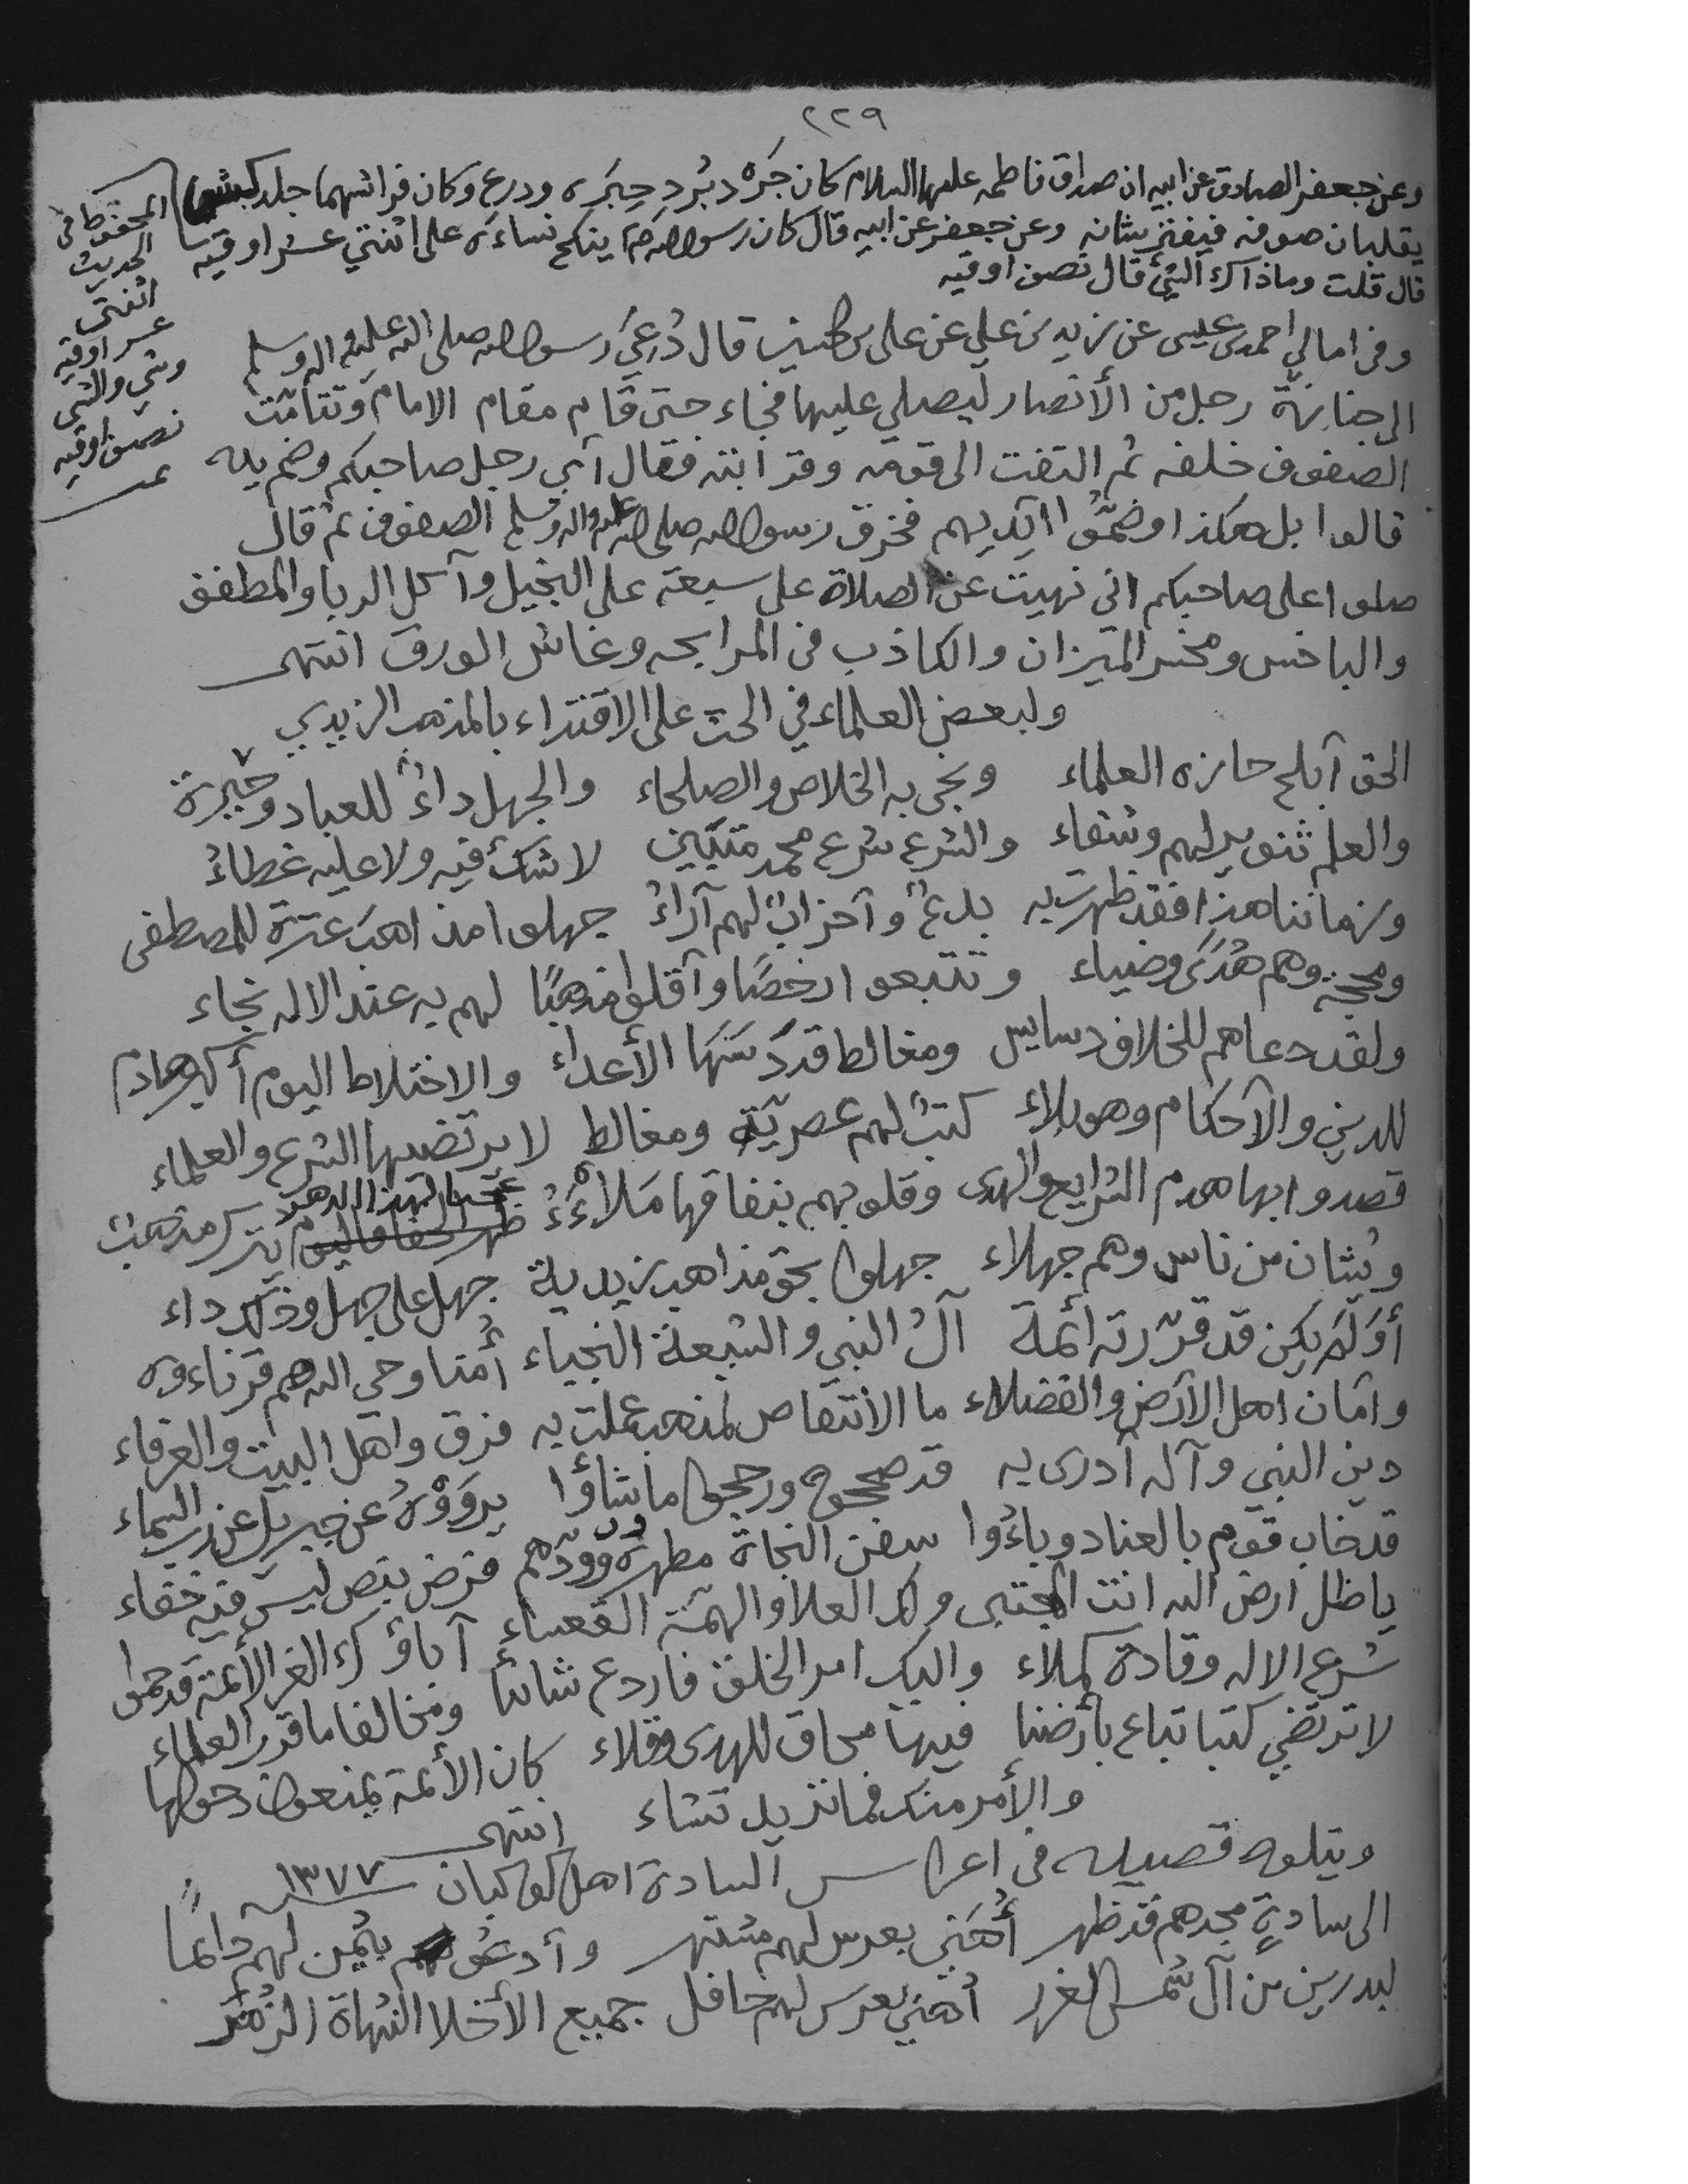 ٢٢٩
وعن جعفر الصادق عن ابيه ان صداق فاطمه عليها السلام كان جَره دبُرد حِبَره ودرع وكان فراشهما جلد كبش
يقلبان صوفه فيفترشانه وعن جعفر عن ابيه قال كان رسول الله ينكح نساءَه على اثنتي عشر اوقيه
قال قلت وماذاك النشئ قال نصف اوقيه
المحفوظ في
الحديث
اثنتى
عشر اوقيه
ونش والنش
نصف اوقيه
وفي امالي احمد بن عيسى عن زيد بن علي عن علي قال دُعِيَ رسول الله صلى الله عليه واله وسلم
الى جنازة رجل من الأنصار ليصلي عليها فجاء حتى قام مقام الامام وتتامّت
الصفوف خلفه ثم التفت الى قومه وقرابته فقال أي رجل صاحبكم وضم يده
قالوا بل هكذا وضمّوا ايديهم فخرق رسول الله صلى الله عليه واله وسلم الصفوف ثم قال
صلوا على صاحبكم اني نهيت عن الصلاة على سبعة على البخيل وآكل الربا والمطفف
والباخس ومخسر الميزان والكاذب في المرابحه وغاش الورق انتهى
ولبعض العلماء في الحث على الاقتداء بالمذهب الزيدي
الحق أبلج حازه العلماء ونجى به الخلاص والصلحاء والجهل داءٌ للعباد وحيرة
والعلم تنوير لهم وشفاء والشرع شرع محمد متبيّن لا شك فيه ولا عليه غطاءُ
وزماننا هذا فقد ظهرت به بدعٌ وأحزابٌ لهم آراءُ جهلوا مذاهب عترة للمصطفى
ومحجة وهم هُدىً وضياء وتتبعوا رخصًا وأقلوا مذهبًا لهم به عند الاله نجاء
ولقد دعاهم للخلاف دسايس ومغالط قد دَسَّهَا الأعداء والاختلاط اليوم أكبر هادم
للدين والأحكام وهو بلاء كتبٌ لهم عصريّة ومغالط لا يرتضيها الشرع والعلماء
قصدوا بها هدم الشرايع والهدى وقلوبهم بنفاقها مَلاءَةُ عجبا لهذا الدهر يترك مذهبٌ
ويُشان من ناس وهم جهلاء جهلوا بحق مذاهب زيدية جهل على جهل وذلك داء
أوَلَم يكن قد قرّرته أئمة آلُ النبي والشيعة النجباء أمنا وحي الله هم قرناءوه
وأمان اهل الأرض والفضلاء ما الانتقاص لمذهب عملت به فرق واهل البيت والعرفاء
دين النبي وآله أدرى به قد صححوه ورجحوا ما شاؤا يروَوْهُ عن جبريل عن رب السماء
قد خاب قوم بالعناد وباءُوا سفن النجاة مطهرة وودّهم فرض بنص ليس فيه خفاء
يا ظل ارض الله انت المجتبى ولك العلا والهمّة القعساء آباؤك الغر الأئمة قد حموا
شرع الاله وقادة كملاء واليك امر الخلق فاردع شانئا ومخالفا ما قرر العلماء
لا ترتضي كتبا تباع بأرضنا فيها محاق للهدى وقلاء كان الأئمة يمنعون دخولها
والأمر منك فما تريد تشاء انتهى
ويتلوه قصيده في اعراس السادة اهل كوكبان ١٣٧٧
الى سادةٍ مجدهم قد ظهر أُهَنّي بعرس لهم مشتهر وأدعو لهم بيُمن لهم دائمًا
لبدرين من آل شمس الغرر أُهنّي بعرس لهم حافل جميع الأخلا النهاة الزُمَر